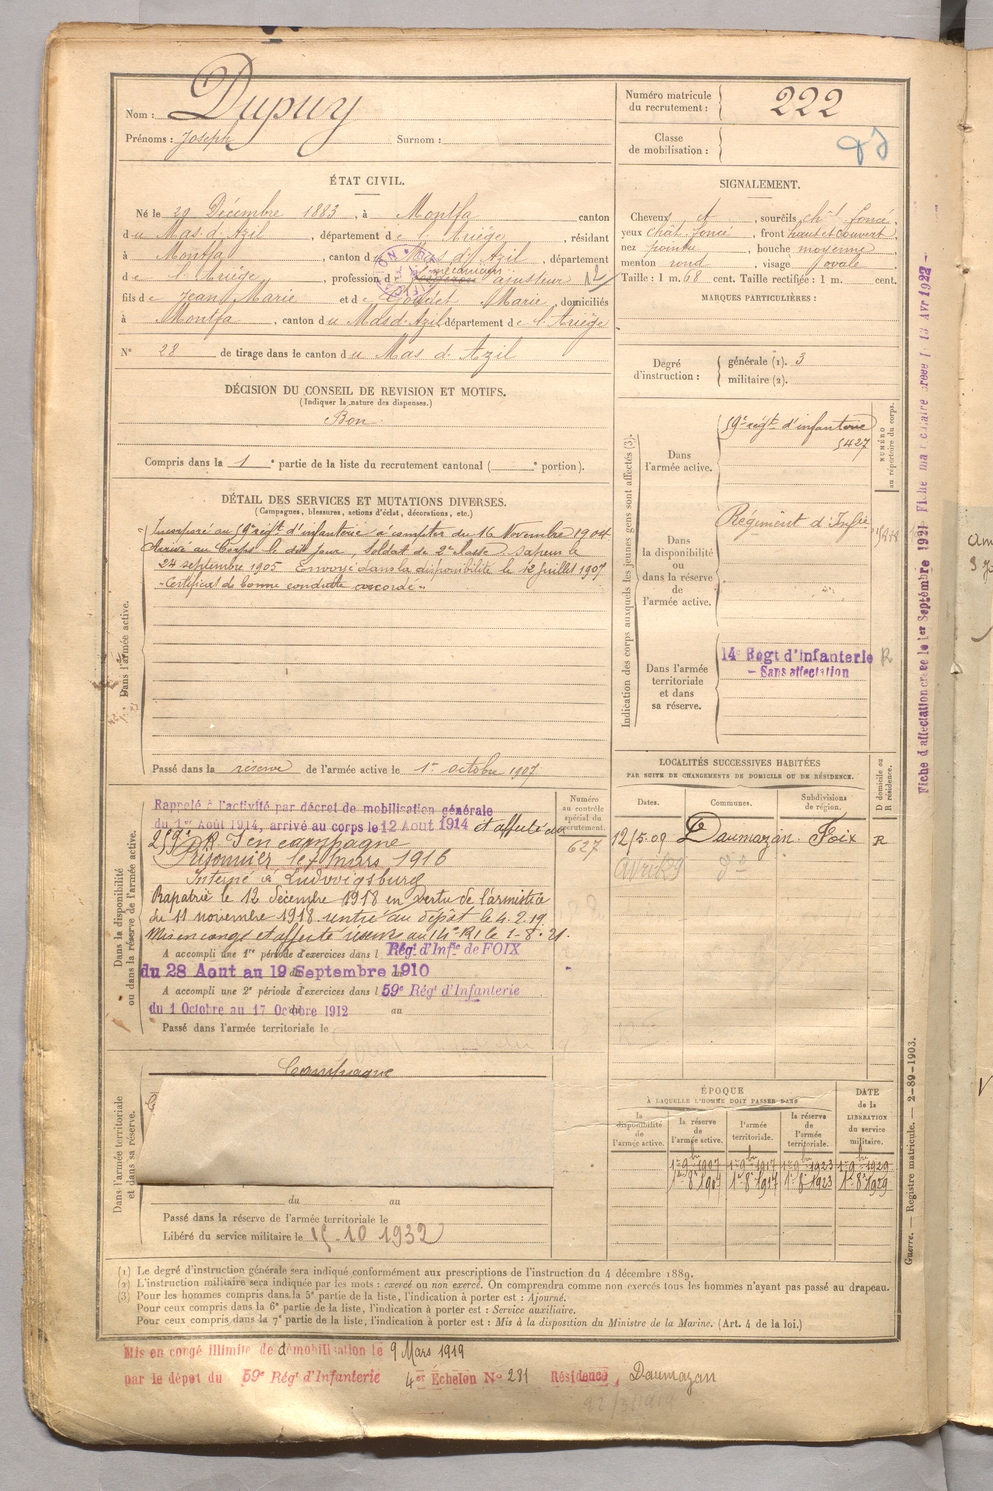 Nom : Dupuy
Prénoms : Joseph Surnom :
Numéro matricule du recrutement : 222
Classe de mobilisation :
ÉTAT CIVIL.
Né le 29 Décembre 1883, à Montfa canton
du Mas d'Azil, département de l'Ariège, résidant
à Montfa, canton du Mas d'Azil, département
de l'Ariège, profession de mécanicien ajusteur
fils de Jean Marie et de Goudet Marie, domiciliés
à Montfa, canton du Mas d'Azil, département de l'Ariège
N° 28 de tirage dans le canton du Mas d'Azil
SIGNALEMENT.
Cheveux, sourcils ch.t foncé,
yeux chât. foncé, front haut et couvert
nez pointu, bouche moyenne
menton rond, visage ovale
Taille : 1 m. 68 cent. Taille rectifiée : 1 m. cent.
MARQUES PARTICULIÈRES :
Degré d'instruction : générale (1). 3
militaire (2).
DÉCISION DU CONSEIL DE REVISION ET MOTIFS.
(Indiquer la nature des dispenses.)
Bon
Compris dans la 1e partie de la liste du recrutement cantonal ( e portion).
DÉTAIL DES SERVICES ET MUTATIONS DIVERSES.
(Campagnes, blessures, actions d'éclat, décorations, etc.)
Dans l'armée active.
Incorporé au 59e régt d'infanterie à compter du 16 Novembre 1904
Arrivé au Corps le dit jour, Soldat de 2e classe Sapeur le
24 septembre 1905 Envoyé dans la disponibilité le 12 Juillet 1907
"Certificat de bonne conduite accordé"
Passé dans la réserve de l'armée active le 1er octobre 1907
Indication des corps auxquels les jeunes gens sont affectés (3).
NUMÉRO au répertoire du corps.
Dans l'armée active.
59e régt d'infanterie
5427
Dans la disponibilité ou dans la réserve de l'armée active.
Régiment d'Infie
Dans l'armée territoriale et dans sa réserve.
14e Régt d'Infanterie R
- Sans affectation
LOCALITÉS SUCCESSIVES HABITÉES
PAR SUITE DE CHANGEMENTS DE DOMICILE OU DE RÉSIDENCE.
Dates. Communes. Subdivisions de région. D domicile ou R résidence.
12/5.09 Daumazan Foix R
Avril 29 do
Dans la disponibilité ou dans la réserve de l'armée active.
Numéro au contrôle spécial du recrutement.
627
Rappelé à l'activité par décret de mobilisation générale
du 1er Août 1914, arrivé au corps le 12 Aout 1914 et affecté au
259e RI en campagne
Prisonnier le 7 mars 1916
Interné à Ludwigsburg
Rapatrié le 12 décembre 1918 en vertu de l'armistice
du 11 novembre 1918 rentré au dépôt le 4.2.19
Mis en congé et affecté réserve au 14e RI le 1-8-21
A accompli une 1re période d'exercices dans l Régt d'Infie de FOIX
du 28 Aout au 19 Septembre 1910
A accompli une 2e période d'exercices dans l 59e Régt d'Infanterie
du 1 Octobre au 17 Octobre 1912 au
Passé dans l'armée territoriale le
Dans l'armée territoriale et dans sa réserve.
Campagne
du au
Passé dans la réserve de l'armée territoriale le
Libéré du service militaire le 15-10 1932
ÉPOQUE
À LAQUELLE L'HOMME DOIT PASSER DANS
la disponibilité de l'armée active. la réserve de l'armée active. l'armée territoriale. la réserve de l'armée territoriale. DATE de la LIBÉRATION du service militaire.
1er 9bre 1907 1er 9bre 1917 1er 9bre 1923 1er 9bre 1929
1er 8bre 1907 1er 8bre 1917 1er 8bre 1923 1er 8bre 1929
(1) Le degré d'instruction générale sera indiqué conformément aux prescriptions de l'instruction du 4 décembre 1889.
(2) L'instruction militaire sera indiquée par les mots : exercé ou non exercé. On comprendra comme non exercés tous les hommes n'ayant pas passé au drapeau.
(3) Pour les hommes compris dans la 5e partie de la liste, l'indication à porter est : Ajourné.
Pour ceux compris dans la 6e partie de la liste, l'indication à porter est : Service auxiliaire.
Pour ceux compris dans la 7e partie de la liste, l'indication à porter est : Mis à la disposition du Ministre de la Marine. (Art. 4 de la loi.)
Mis en congé illimité de démobilisation le 9 Mars 1919
par le dépot du 59e Régt d'Infanterie 4er Échelon N° 281 Résidence, Daumazan
Guerre. — Registre matricule. — 2-89-1903.
Fiche d'affectation créée le 1er Septembre 1921 Fiche matriculaire créée l 13 Avr 1922